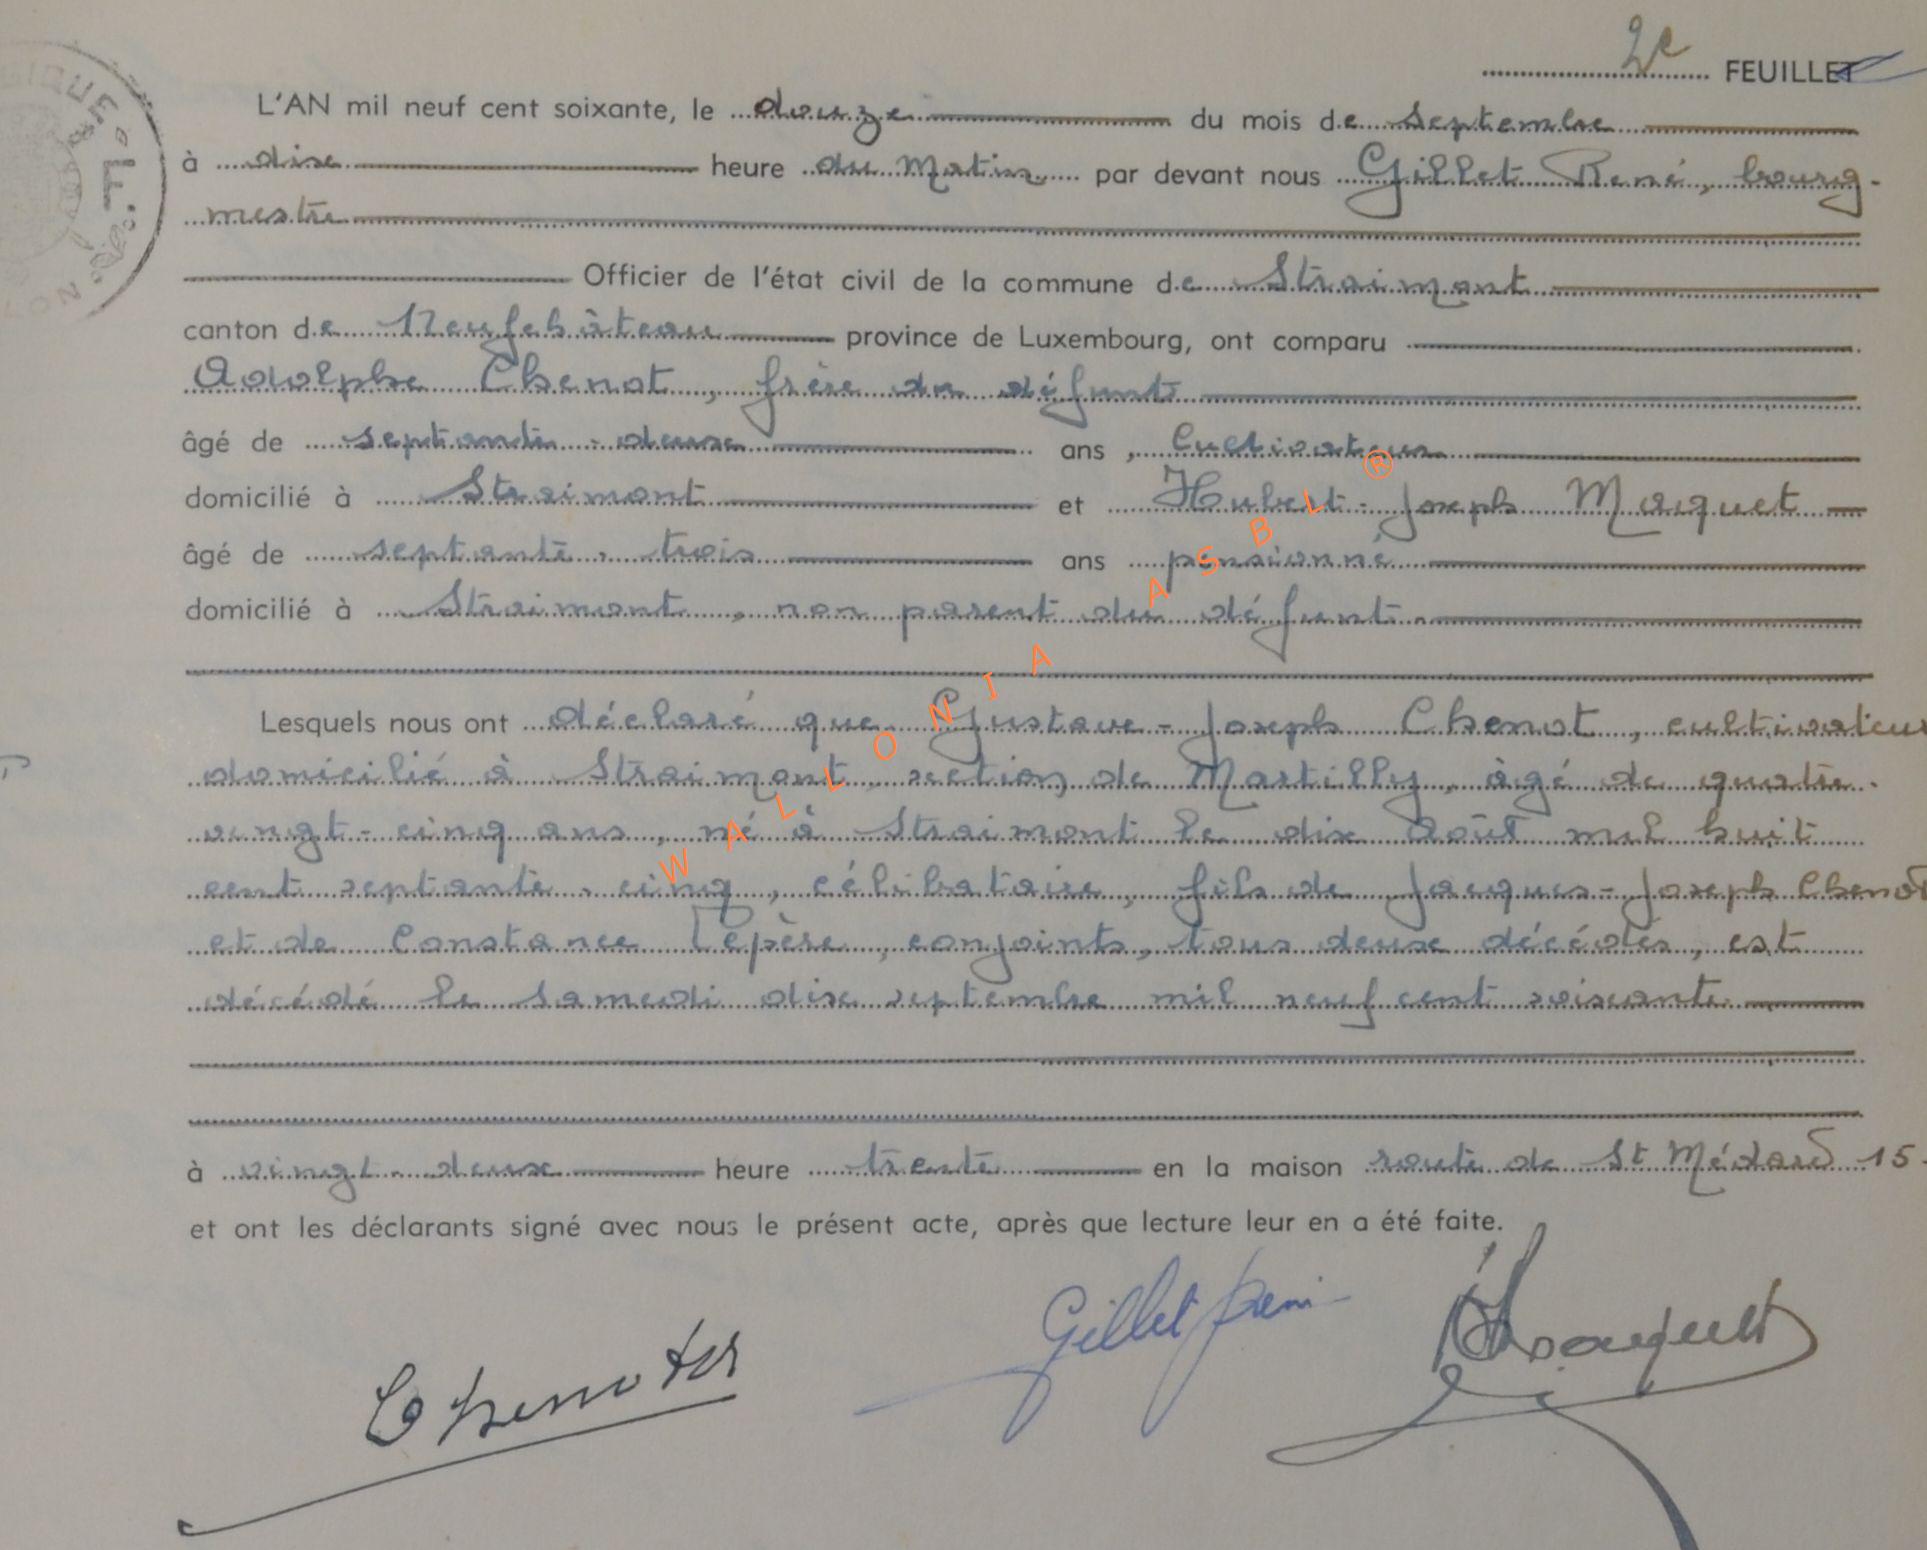 2e FEUILLET
L'AN mil neuf cent soixante, le douze du mois de Septembre
à dix heure du Matin par devant nous Gillet René, bourg-
mestre
Officier de l'état civil de la commune de Straimont
canton de Neufchâteau province de Luxembourg, ont comparu
Adolphe Chenot, frère du défunt
âgé de septante-deux ans, Cultivateur
domicilié à Straimont et Hubert-Joseph Maquet
âgé de septante-trois ans pensionné
domicilié à Straimont, non parent du défunt.
Lesquels nous ont déclaré que Gustave-Joseph Chenot, cultivateur
domicilié à Straimont, section de Martilly, âgé de quatre-
vingt-cinq ans, né à Straimont le dix Août mil huit
cent septante-cinq, célibataire, fils de Jacques-Joseph Chenot
et de Constance Lepère, conjoints, tous deux décédés, est
décédé le Samedi dix septembre mil neuf cent soixante
à vingt-deux heure trente en la maison route de St Médard 15.
et ont les déclarants signé avec nous le présent acte, après que lecture leur en a été faite.
Chenot Gillet René Maquet
WALLONIA ASBL ®